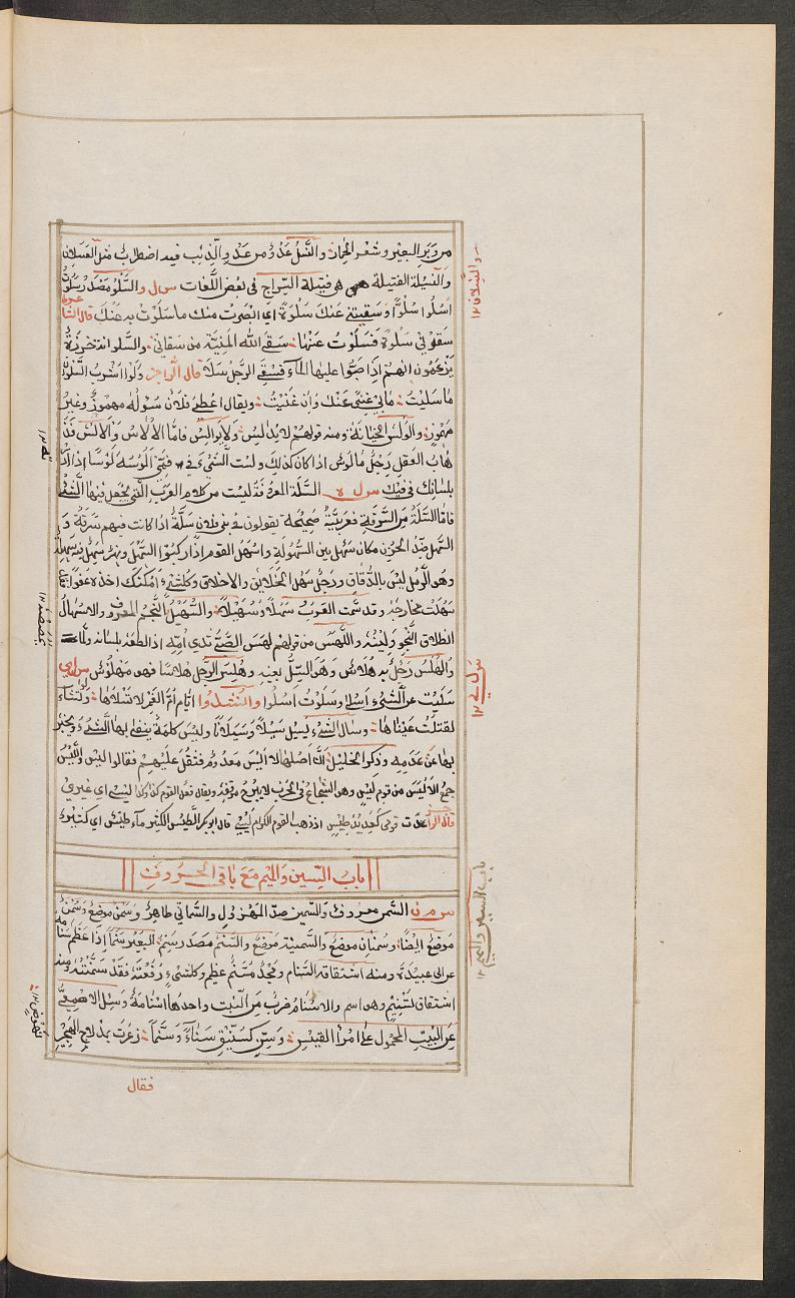 من وبر البعير وشعر الحمار والنسل عدو من عدو الذئب فيه اضطراب مثل العسلان
والنسيلة الفتيلة وهي فتيلة السراج في بعض اللغات س ل و السلو مصدر سلوت
اسلوا سلوّا وسقيتني عنك سلوة اي ابصرت منك ما سلوت به عنك قال الشاعر
سقوني سلوة فسلوت عنها سقى الله المنية من سقاني والسلوانة خرزة
يزعمون انهم اذا صبّوا عليها الماء فسقي الرجل سلا قال الراجز لو اشرب السلوان
ما سليت ما بي غنى عنك وان غنيت ويقال اعطي فلان سؤله مهموز وغير
مهموز والولس الخيانة ومنه قولهم لا يدالس ولا يوالس فاما الالاس والالس فذ
هاب العقل رجل مالوس اذا كان كذلك ولست الشيء في فمي الوسه لوسا اذا
بلسانك في فيك س ل ه السلة المعروفة ليست من كلام العرب التي يجعل فيها الشيء
فاما السلة من السرقة فعربية صحيحة يقولون في بني فلان سلة اذا كانت فيهم سرقة و
السهل ضد الحزن مكان سهل بين السهولة واسهل القوم اذا ركبوا السهل ونهر سهل فيه سهلة
وهو الرمل ليس بالدقاق ورجل سهل الخلايق والاخلاق وكل شيء امكنك اخذه عفوا فقد
سهلت مخارجه وقد سمت العرب سهلا وسهيلا والسهيل النجم المعروف والاسهال
اطلاق النجو ولينه واللهس من قولهم لهس الصبي ثدي امه اذا لطعه بلسانه ولما
والهلس رجل به هلاس وهو السل بعينه وهلس الرجل هلاسا فهو مهلوس س ل ي
سليت عن الشيء اسلا وسلوت اسلوا وانشدوا ايام ام الغمر لا تسلاها ولو تشاء
لقتلت عيناها وسال الشيء يسيل سيلا وسيلانا وليس كلمة ينفى بها الشيء ويخبر
بها عن عدمه وذكر الخليل انه اصلها لا ايس معدوم فثقل عليهم فقالوا ليس والليس
جمع الاليس من قوم ليس وهو الشجاع في الحرب لا يبرح موقفه ويقال فعل القوم كذا وكذا ليسي اي غيري
قال الراجز عددت قومي كعديد الطيس اذ ذهب القوم الكرام ليسي قال ابو بكر الطيس الكثير ماء طيس اي كثير
باب السين والميم مع باقي الحروف
س م ن السمن معروف والسمين ضد المهزول والسماني طائر وسمن موضع وسمن
موضع ايضا وسمنان موضع والسمنية موضع والسنم مصدر سنم البعير سنما اذا عظم سنامه
عن ابي عبيدة ومنه اشتقاقه السنام ومجد مسنم عظيم وكل شيء رفعته فقد سنمته ومنه
اشتقاق تسنيم وهو اسم والاسنام ضرب من النبت واحدها اسنامة وسئل الاصمعي
عن البيت المحمول على امرئ القيس وسن كسنيق سناء وسنما ذعرت بمدلاج الهجير
فقال
والنسلان ١٢
س ل ي ١٢
باب السين والميم ١٢
نهوض ١٢